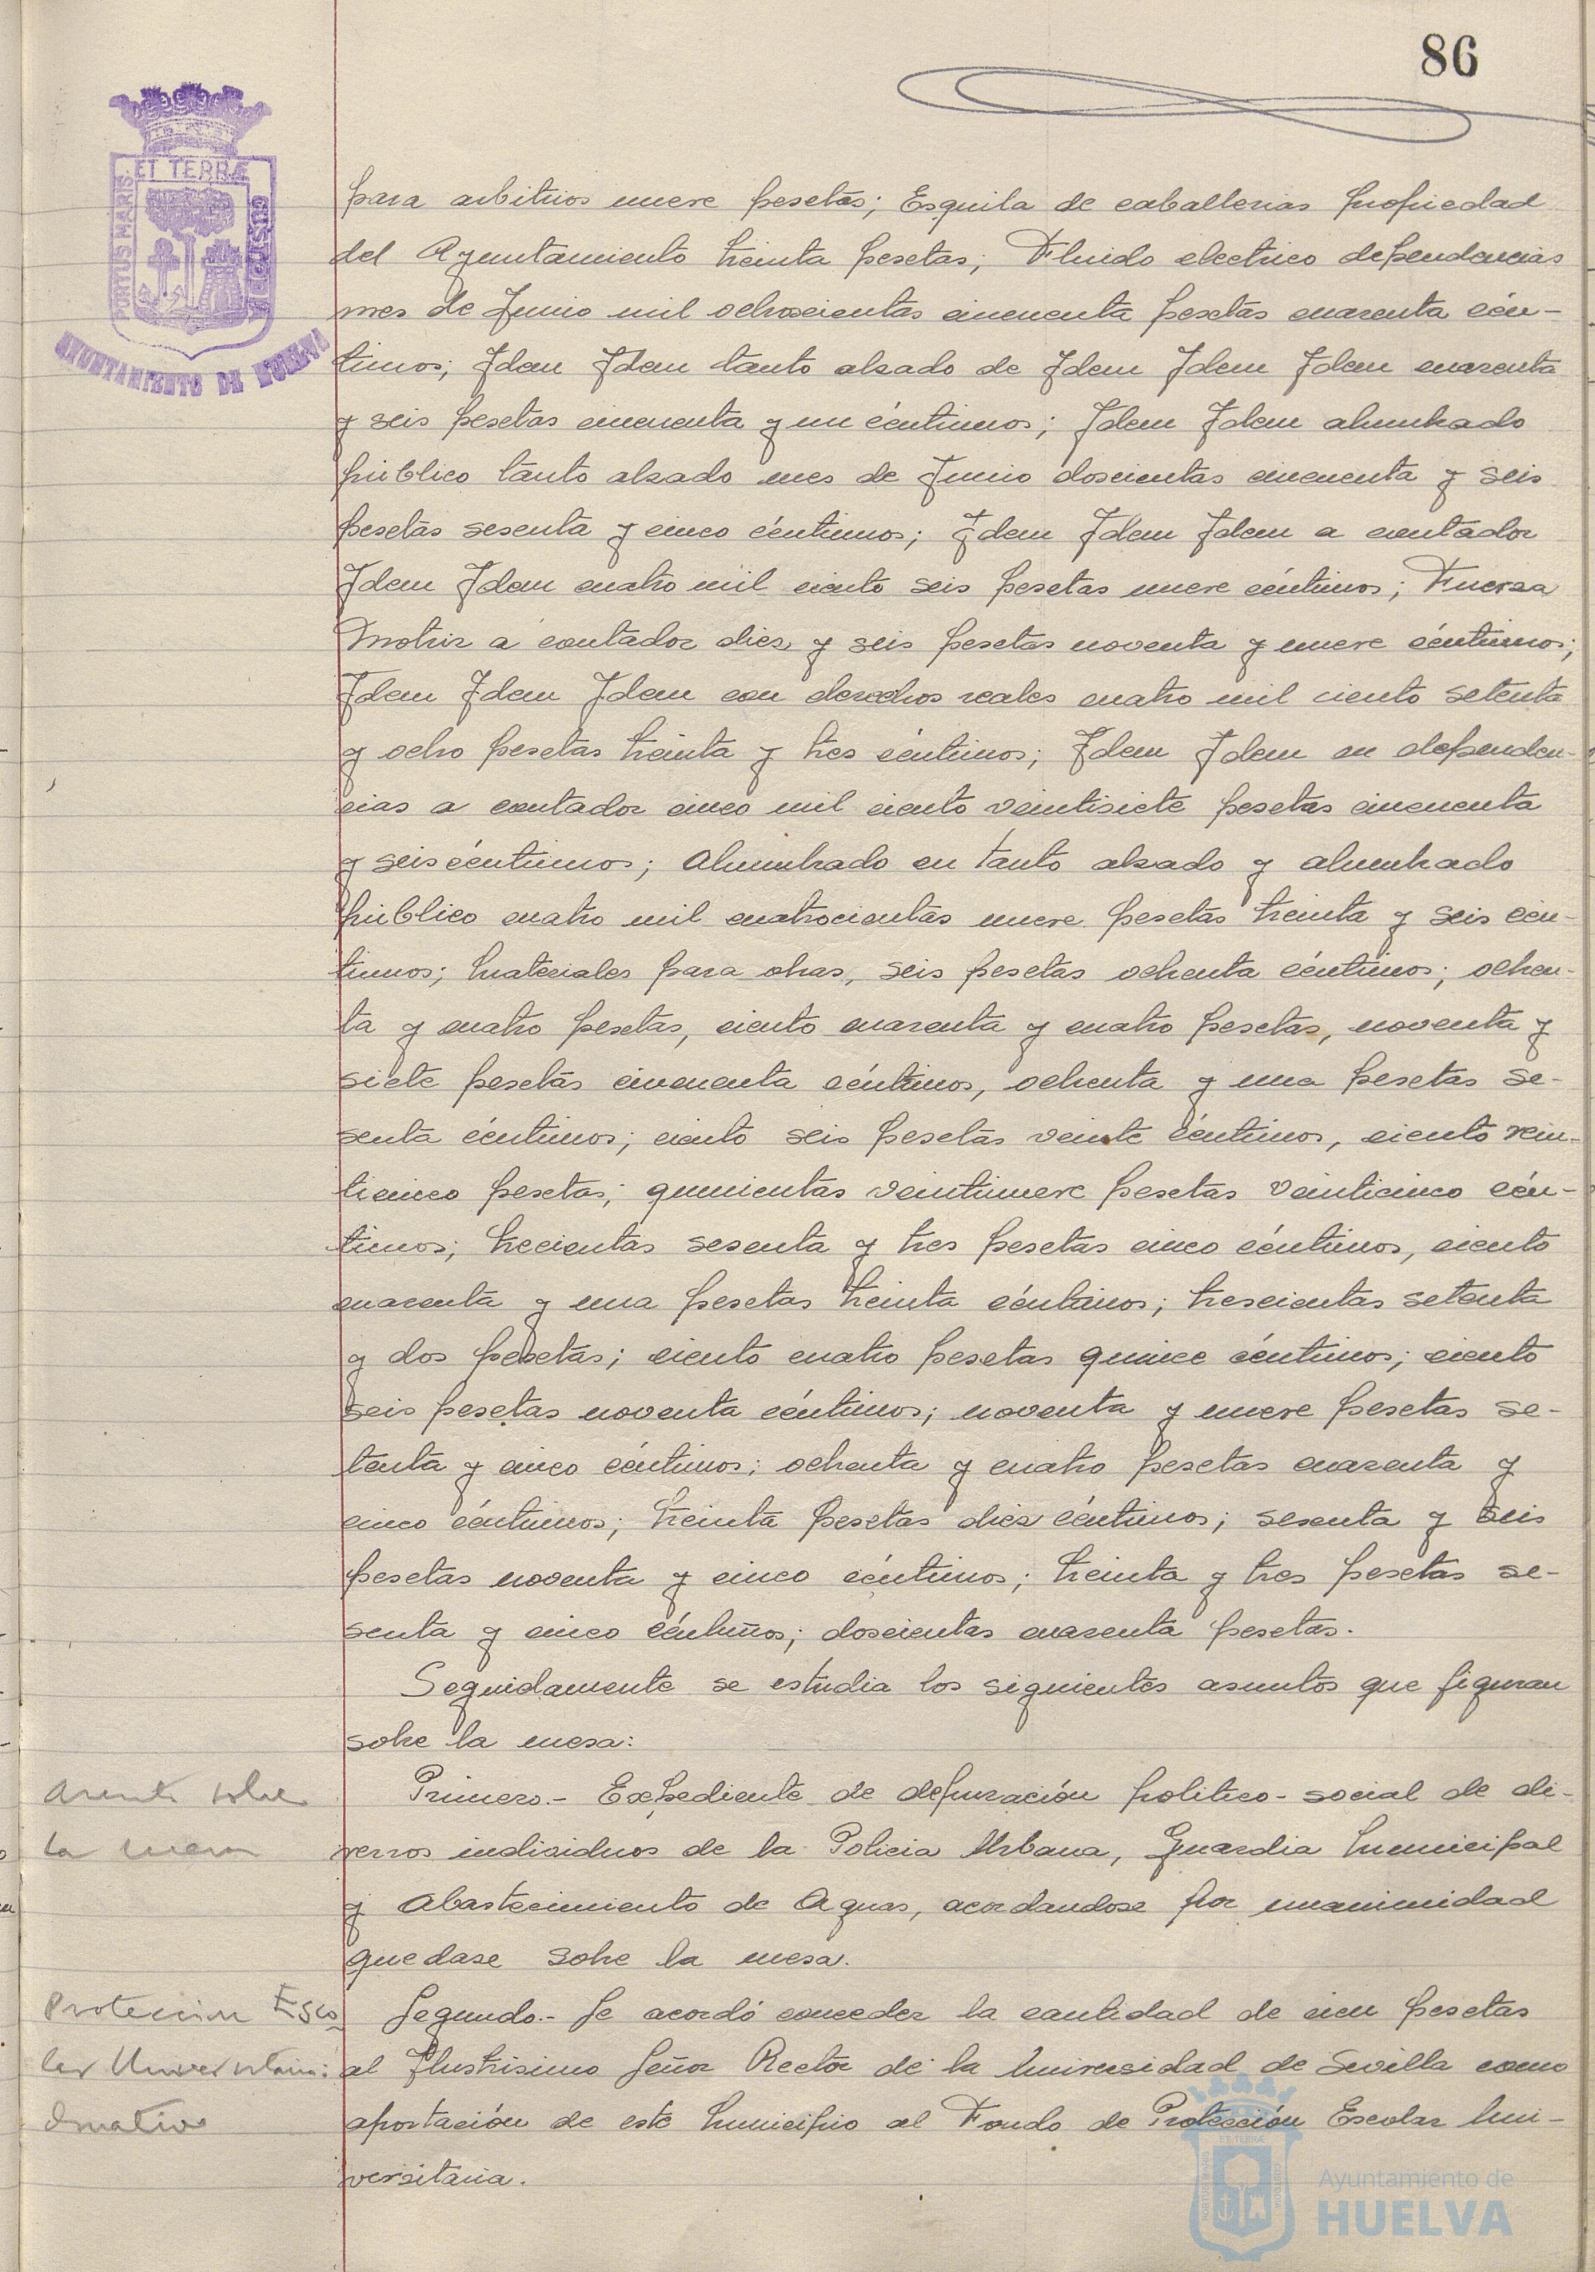 86
ET TERRÆ
PORTUS MARIS
CUSTODIA
AYUNTAMIENTO DE HUELVA
para arbitrios nueve pesetas; Esquila de caballerias propiedad
del Ayuntamiento treinta pesetas; Fluido electrico dependencias
mes de Junio mil ochocientas cincuenta pesetas cuarenta cén-
timos; Idem Idem tanto alzado de Idem Idem Idem cuarenta
y seis pesetas cincuenta y un céntimos; Idem Idem alumbrado
público tanto alzado mes de Junio doscientas cincuenta y seis
pesetas sesenta y cinco céntimos; Idem Idem Idem a contador
Idem Idem cuatro mil ciento seis pesetas nueve céntimos; Fuerza
Motriz a contador diez y seis pesetas noventa y nueve céntimos;
Idem Idem Idem con derechos reales cuatro mil ciento setenta
y ocho pesetas treinta y tres céntimos; Idem Idem en dependen-
cias a contador cinco mil ciento veintisiete pesetas cincuenta
y seis céntimos; Alumbrado en tanto alzado y alumbrado
público cuatro mil cuatrocientas nueve pesetas treinta y seis cén-
timos; Materiales para obras, seis pesetas ochenta céntimos; ochen-
ta y cuatro pesetas, ciento cuarenta y cuatro pesetas, noventa y
siete pesetas cincuenta céntimos, ochenta y una pesetas se-
senta céntimos; ciento seis pesetas veinte céntimos, ciento vein-
ticinco pesetas; quinientas veintinueve pesetas veinticinco cén-
timos; trecientas sesenta y tres pesetas cinco céntimos, ciento
cuarenta y una pesetas treinta céntimos; trescientas setenta
y dos pesetas; ciento cuatro pesetas quince céntimos; ciento
seis pesetas noventa céntimos; noventa y nueve pesetas se-
tenta y cinco céntimos; ochenta y cuatro pesetas cuarenta y
cinco céntimos; treinta pesetas diez céntimos; sesenta y seis
pesetas noventa y cinco céntimos; treinta y tres pesetas se-
senta y cinco céntimos; doscientas cuarenta pesetas.
Seguidamente se estudia los siguientes asuntos que figuran
sobre la mesa:
Asunto sobre
la mesa
Primero.- Expediente de depuración politico-social de di-
versos individuos de la Policia Urbana, Guardia Municipal
y Abastecimiento de Aguas, acordandose por unanimidad
quedase sobre la mesa.
Proteccion Esco
lar Universitaria:
Donativo
Segundo.- Se acordó conceder la cantidad de cien pesetas
al Ilustrisimo Señor Rector de la Universidad de Sevilla como
aportación de este Municipio al Fondo de Protección Escolar Uni-
versitaria.
Ayuntamiento de
HUELVA